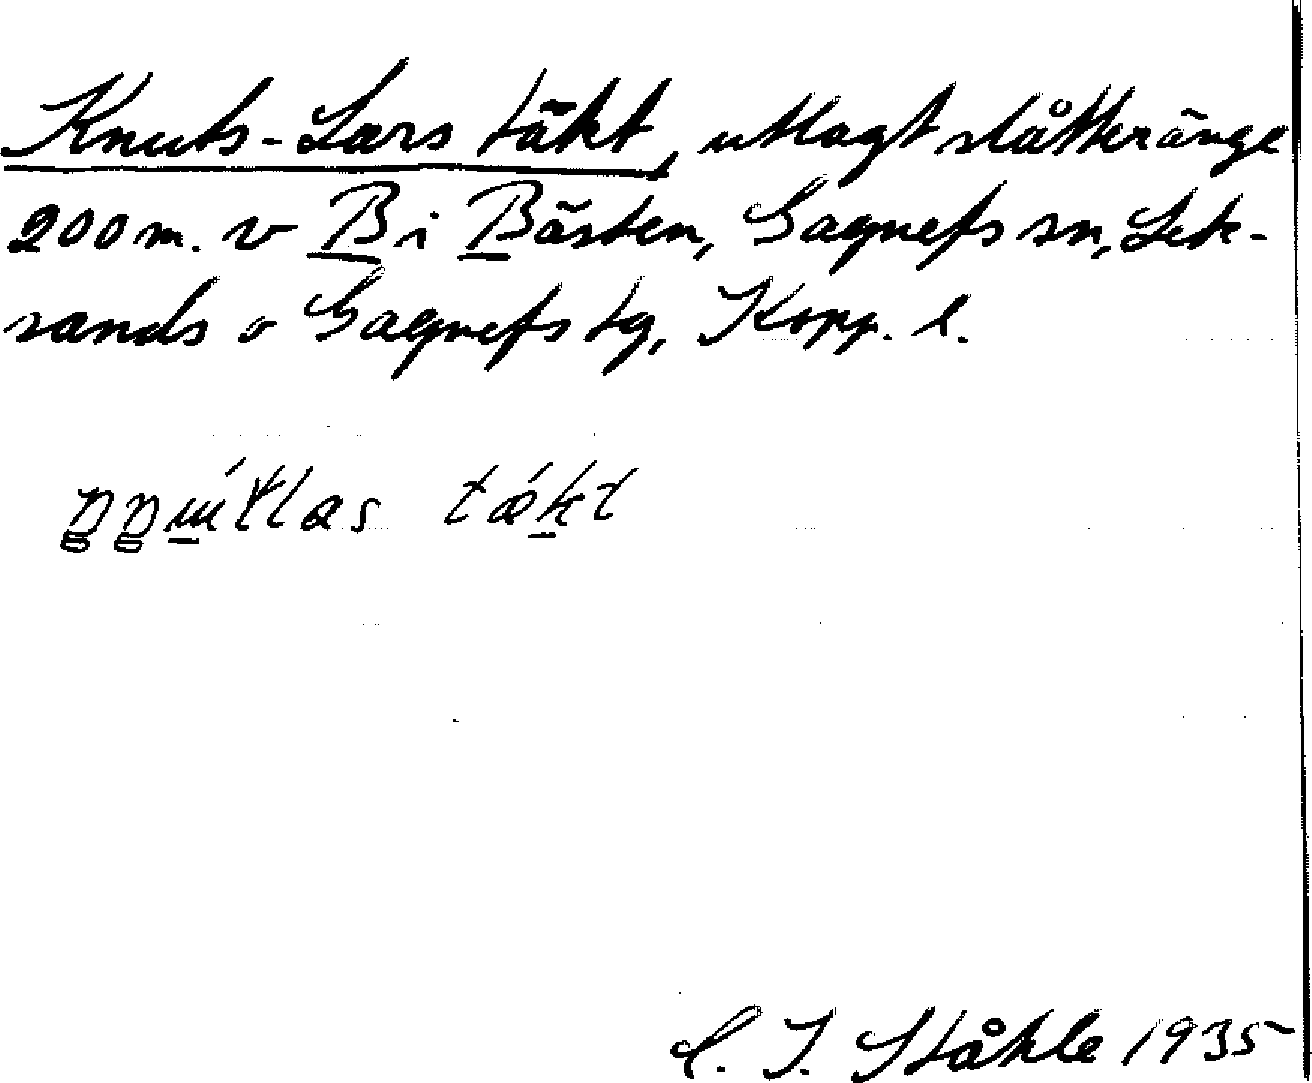 Knuts-Lars täkt, utlagt slåtteränge
200 m. v B i Bästen, Gagnefs sn, Lek-
sands o Gagnefs tg, Kopp. l.
täkt
C. I. Ståhle 1935